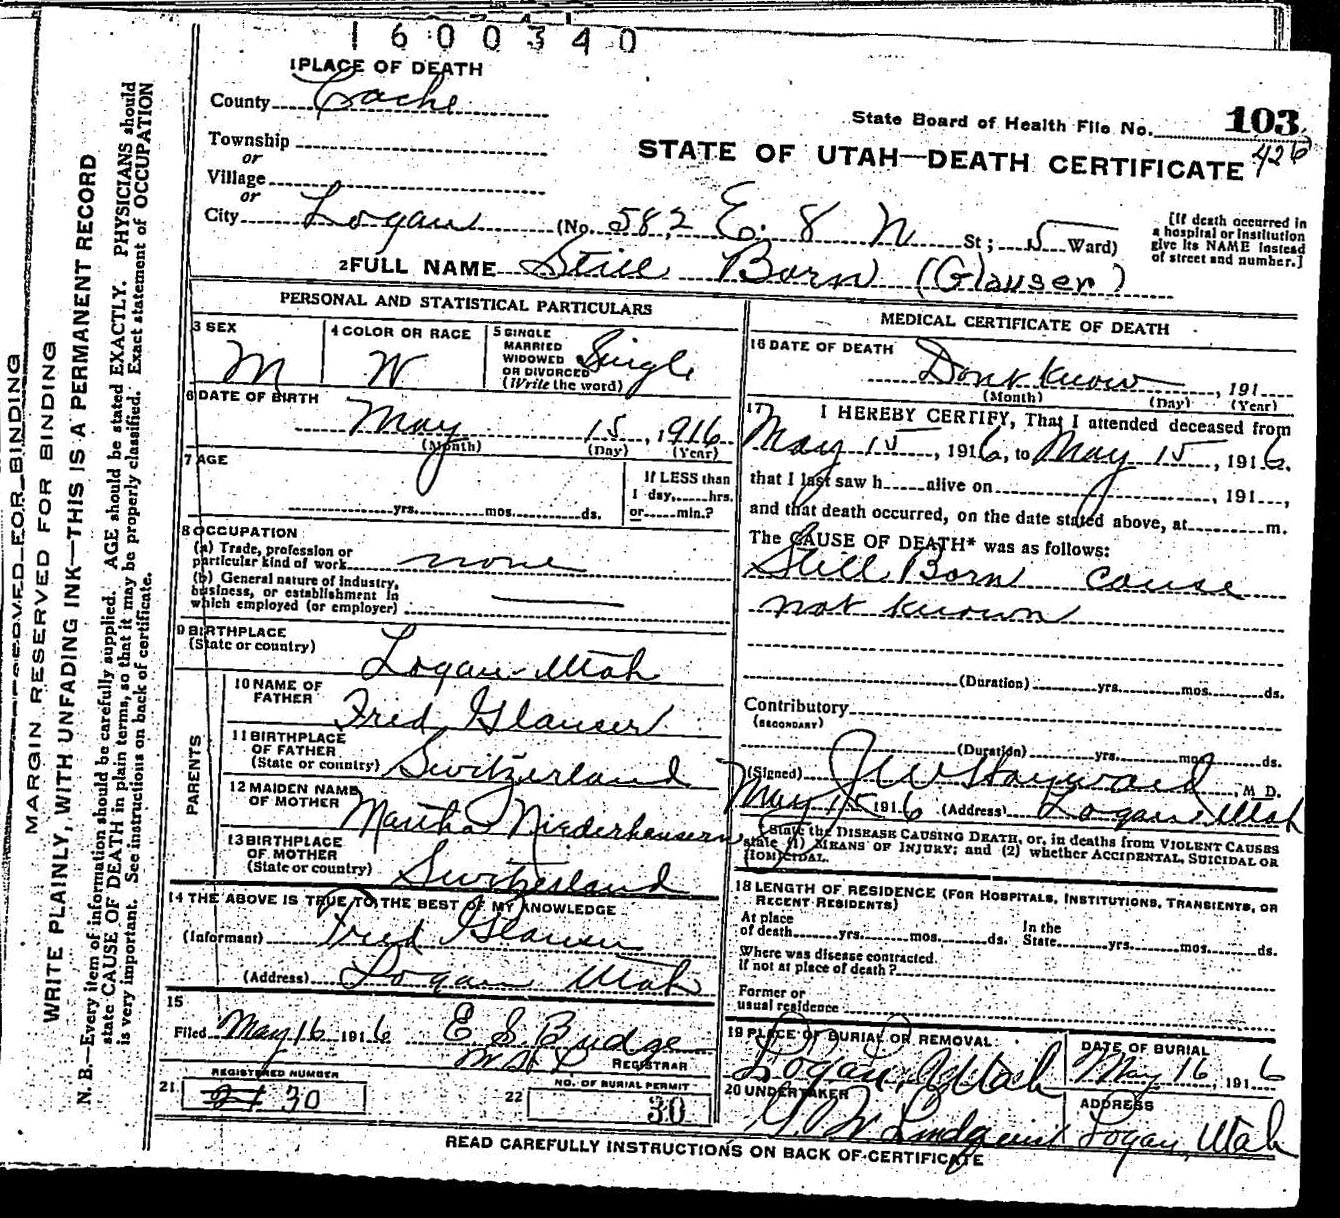 1600340
1 PLACE OF DEATH
County Cache
Township
or
Village
or
City Logan (No. 582 E. 8 N St; 5 Ward)
State Board of Health File No. 103
426
STATE OF UTAH—DEATH CERTIFICATE
[If death occurred in
a hospital or institution
give its NAME instead
of street and number.]
2 FULL NAME Still Born (Glauser)
PERSONAL AND STATISTICAL PARTICULARS
3 SEX
M
4 COLOR OR RACE
W
5 SINGLE
MARRIED
WIDOWED
OR DIVORCED
(Write the word)
Single
6 DATE OF BIRTH
May 15, 1916
(Month) (Day) (Year)
7 AGE
yrs. mos. ds.
If LESS than
1 day, hrs.
or min.?
8 OCCUPATION
(a) Trade, profession or
particular kind of work none
(b) General nature of industry,
business, or establishment in
which employed (or employer)
9 BIRTHPLACE
(State or country)
Logan Utah
PARENTS
10 NAME OF
FATHER
Fred Glauser
11 BIRTHPLACE
OF FATHER
(State or country) Switzerland
12 MAIDEN NAME
OF MOTHER Martha Niederhausern
13 BIRTHPLACE
OF MOTHER
(State or country) Switzerland
14 THE ABOVE IS TRUE TO THE BEST OF MY KNOWLEDGE
(Informant) Fred Glauser
(Address) Logan Utah
15
Filed May 16 1916 E S Budge
REGISTRAR
21 REGISTERED NUMBER
21 30
22 NO. OF BURIAL PERMIT
30
MEDICAL CERTIFICATE OF DEATH
16 DATE OF DEATH
Dont know, 191
(Month) (Day) (Year)
17 I HEREBY CERTIFY, That I attended deceased from
May 15, 1916, to May 15, 1916.
that I last saw h alive on , 191 ,
and that death occurred, on the date stated above, at m.
The CAUSE OF DEATH* was as follows:
Still Born cause
not known
(Duration) yrs. mos. ds.
Contributory
(SECONDARY)
(Duration) yrs. mos. ds.
(Signed) J W Hayward, M. D.
May 15 1916 (Address) Logan Utah
*State the DISEASE CAUSING DEATH, or, in deaths from VIOLENT CAUSES
state (1) MEANS OF INJURY; and (2) whether ACCIDENTAL, SUICIDAL OR
HOMICIDAL.
18 LENGTH OF RESIDENCE (FOR HOSPITALS, INSTITUTIONS, TRANSIENTS, OR
RECENT RESIDENTS)
At place
of death yrs. mos. ds.
In the
State yrs. mos. ds.
Where was disease contracted.
if not at place of death?
Former or
usual residence
19 PLACE OF BURIAL OR REMOVAL
Logan, Utah
DATE OF BURIAL
May 16, 1916
20 UNDERTAKER
Lindquist
ADDRESS
Logan, Utah
READ CAREFULLY INSTRUCTIONS ON BACK OF CERTIFICATE
MARGIN RESERVED FOR BINDING
MARGIN RESERVED FOR BINDING
WRITE PLAINLY, WITH UNFADING INK—THIS IS A PERMANENT RECORD
N. B.—Every item of information should be carefully supplied. AGE should be stated EXACTLY. PHYSICIANS should
state CAUSE OF DEATH in plain terms, so that it may be properly classified. Exact statement of OCCUPATION
is very important. See instructions on back of certificate.